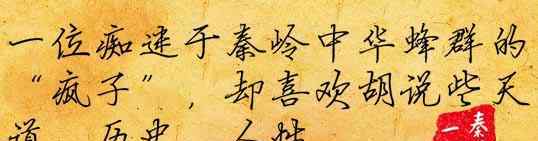 一位痴迷于秦岭中华蜂群的
“疯子”，却喜欢胡说些天
道、历史、人性
秦一